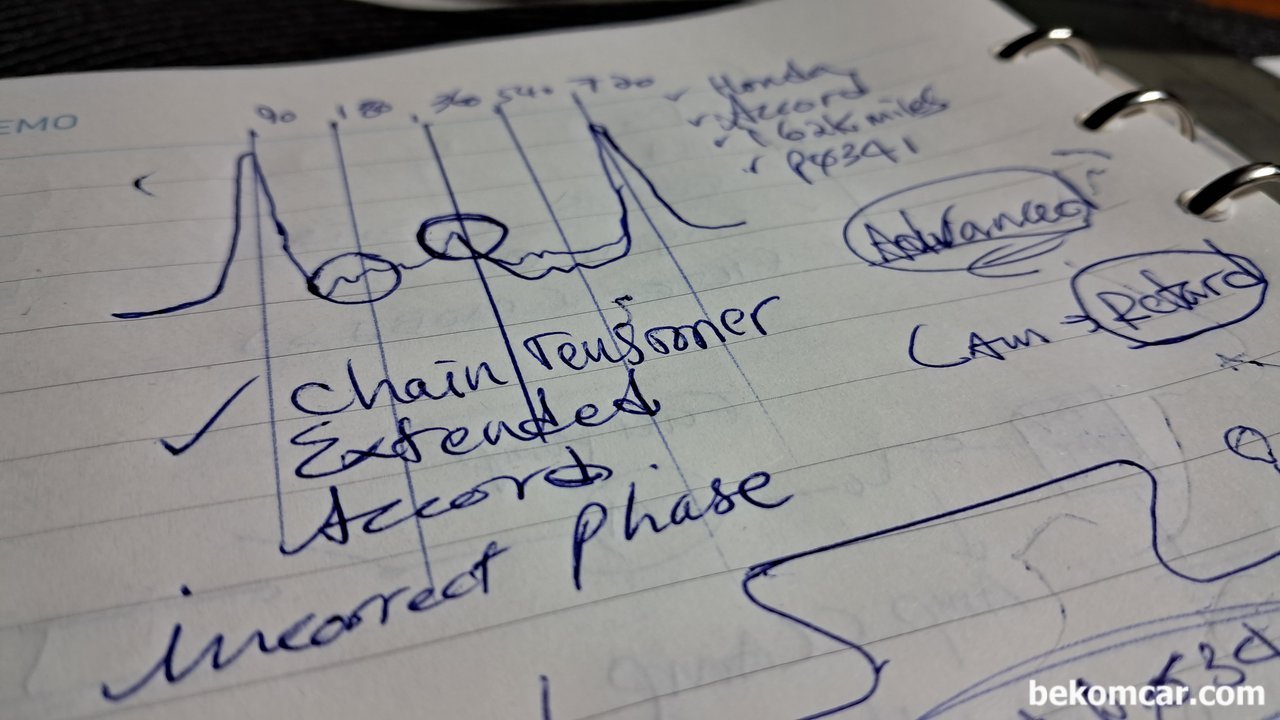 EMO
90 180 360 540 720
Honda
Accord
162K miles
P0341
Advanced
Cam → Retard
Chain Tensioner
Extended
Accord
incorrect phase
bekomcar.com